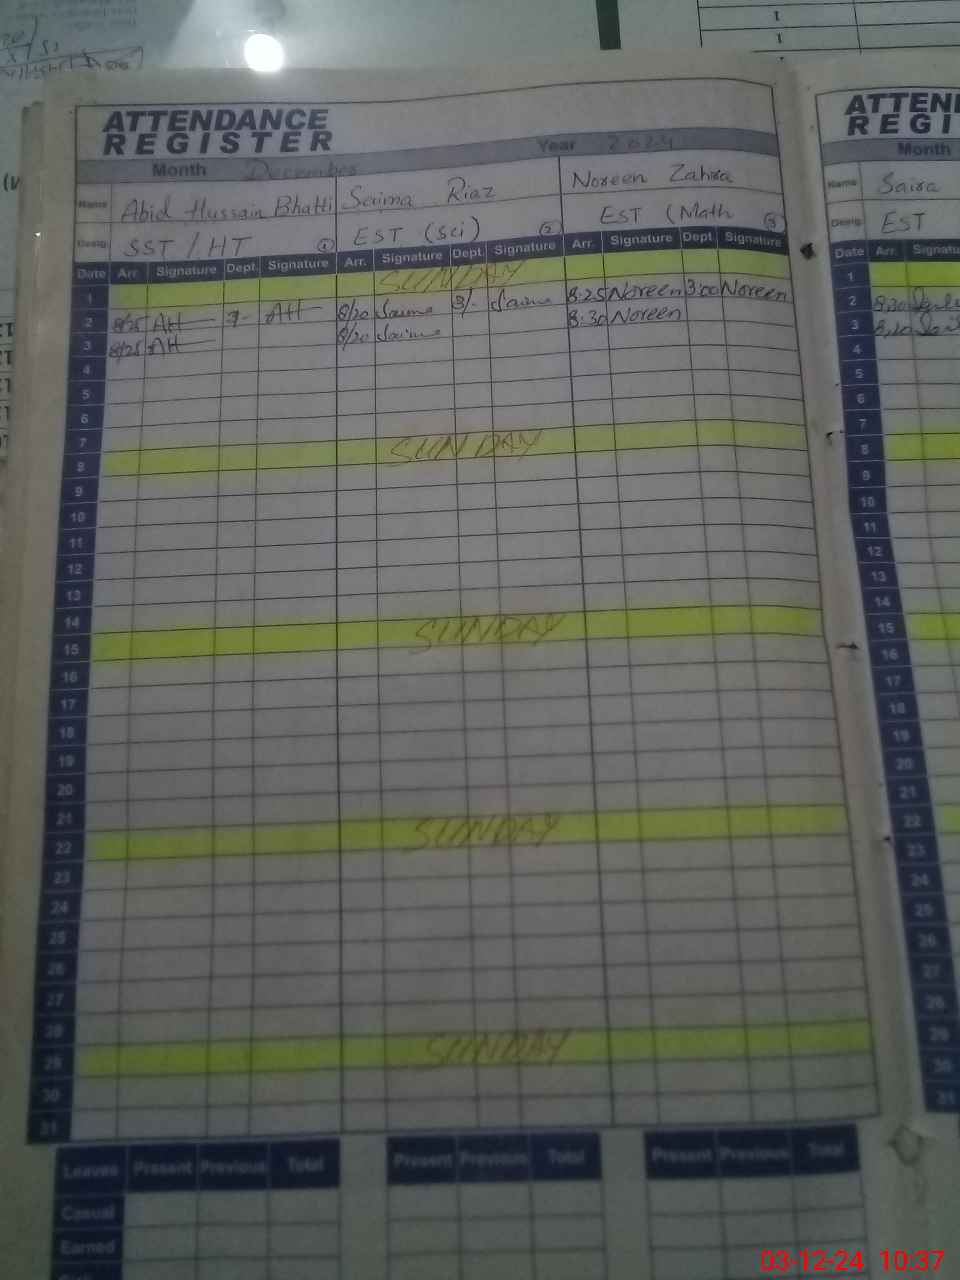 ATTENDANCE
REGISTER
Month December Year 2024
Name Abid Hussain Bhatti Saima Riaz Noreen Zahra
Desig. SST / HT ① EST (Sci) ② EST (Math ③
Date Arr. Signature Dept. Signature Arr. Signature Dept. Signature Arr. Signature Dept. Signature
1 SUNDAY
2 8/25 AH 3- AH 8/20 Saima 3/- Saima 8:25 Noreen 3:00 Noreen
3 8/25 AH 8/20 Saima 8:30 Noreen
4
5
6
7
8 SUNDAY
9
10
11
12
13
14
15 SUNDAY
16
17
18
19
20
21
22 SUNDAY
23
24
25
26
27
28
29 SUNDAY
30
31
Leaves Present Previous Total Present Previous Total Present Previous Total
Casual
Earned
ATTEN
REGI
Month
Name Saira
Desig. EST
Date Arr. Signatu
1
2 8:20
3
4
5
6
7
8
9
10
11
12
13
14
15
16
17
18
19
20
21
22
23
24
25
26
27
28
29
30
31
03-12-24 10:37